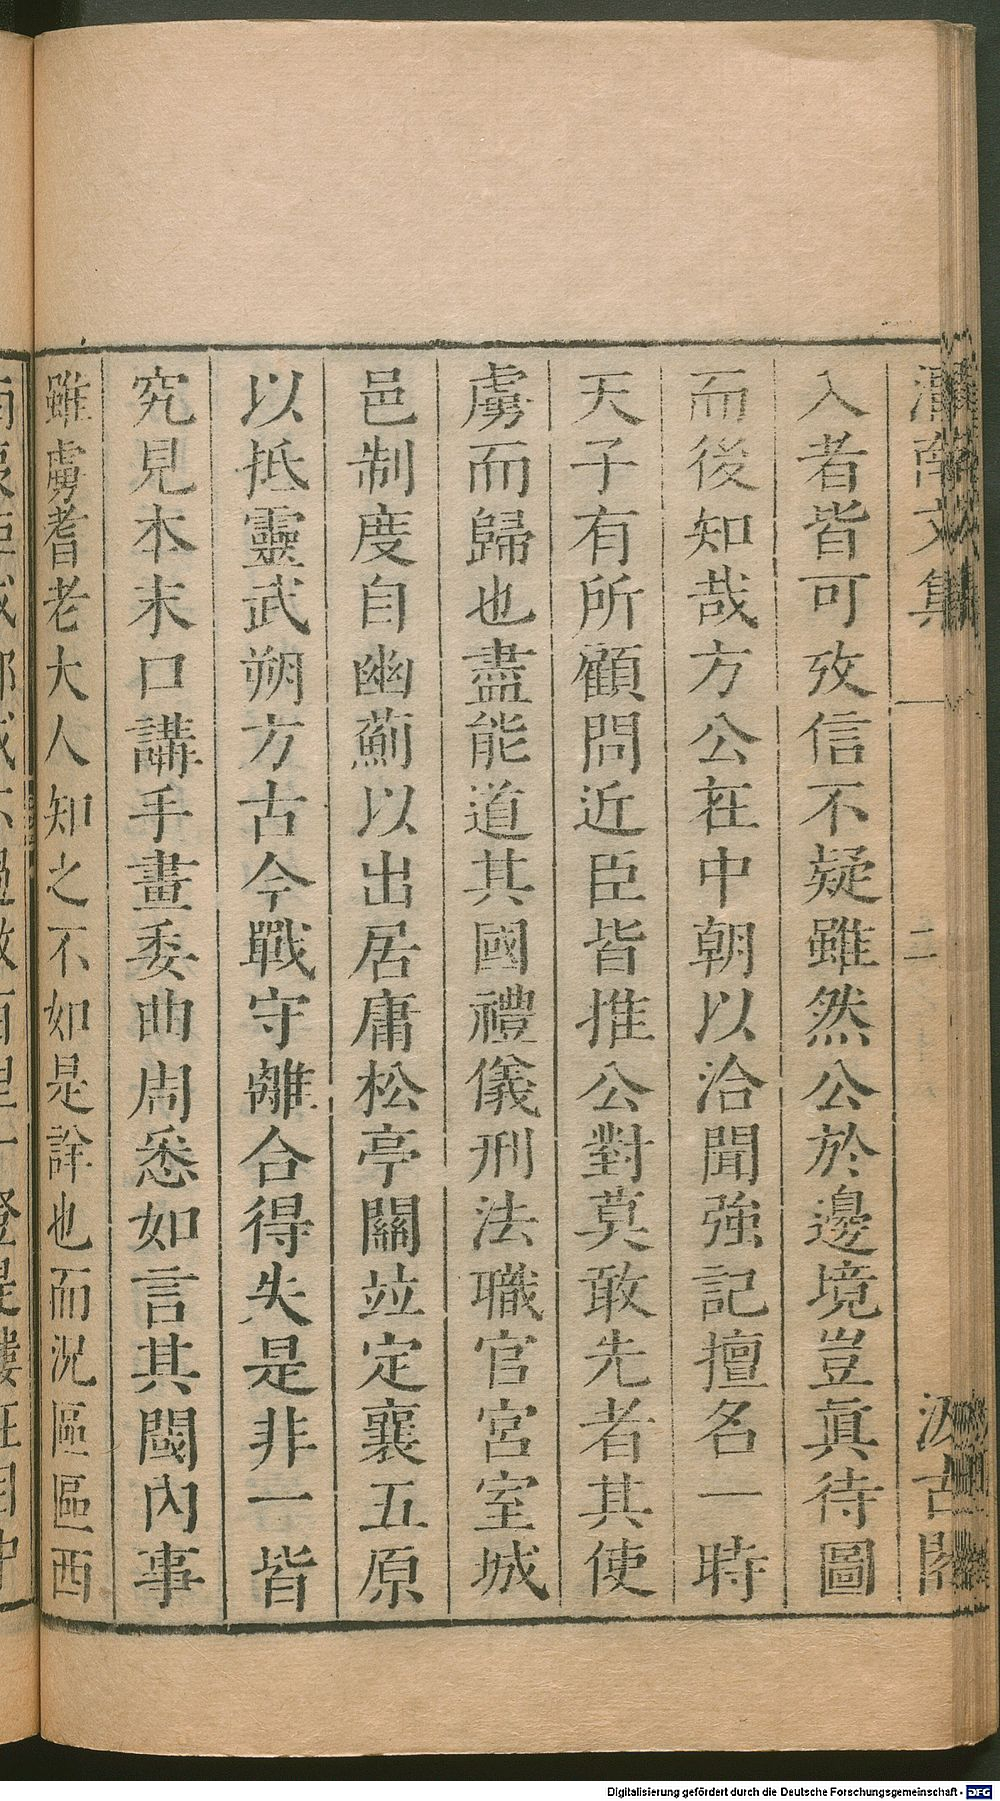 文集 二 汲古閣
入者皆可攷信不疑雖然公於邊境豈眞待圖
而後知哉方公在中朝以洽聞強記擅名一時
天子有所顧問近臣皆推公對莫敢先者其使
虜而歸也盡能道其國禮儀刑法職官宮室城
邑制度自幽薊以出居庸松亭關竝定襄五原
以抵靈武朔方古今戰守離合得失是非一皆
究見本末口講手畫委曲周悉如言其閫內事
雖虜耆老大人知之不如是詳也而況區區西
Digitalisierung gefördert durch die Deutsche Forschungsgemeinschaft - DFG